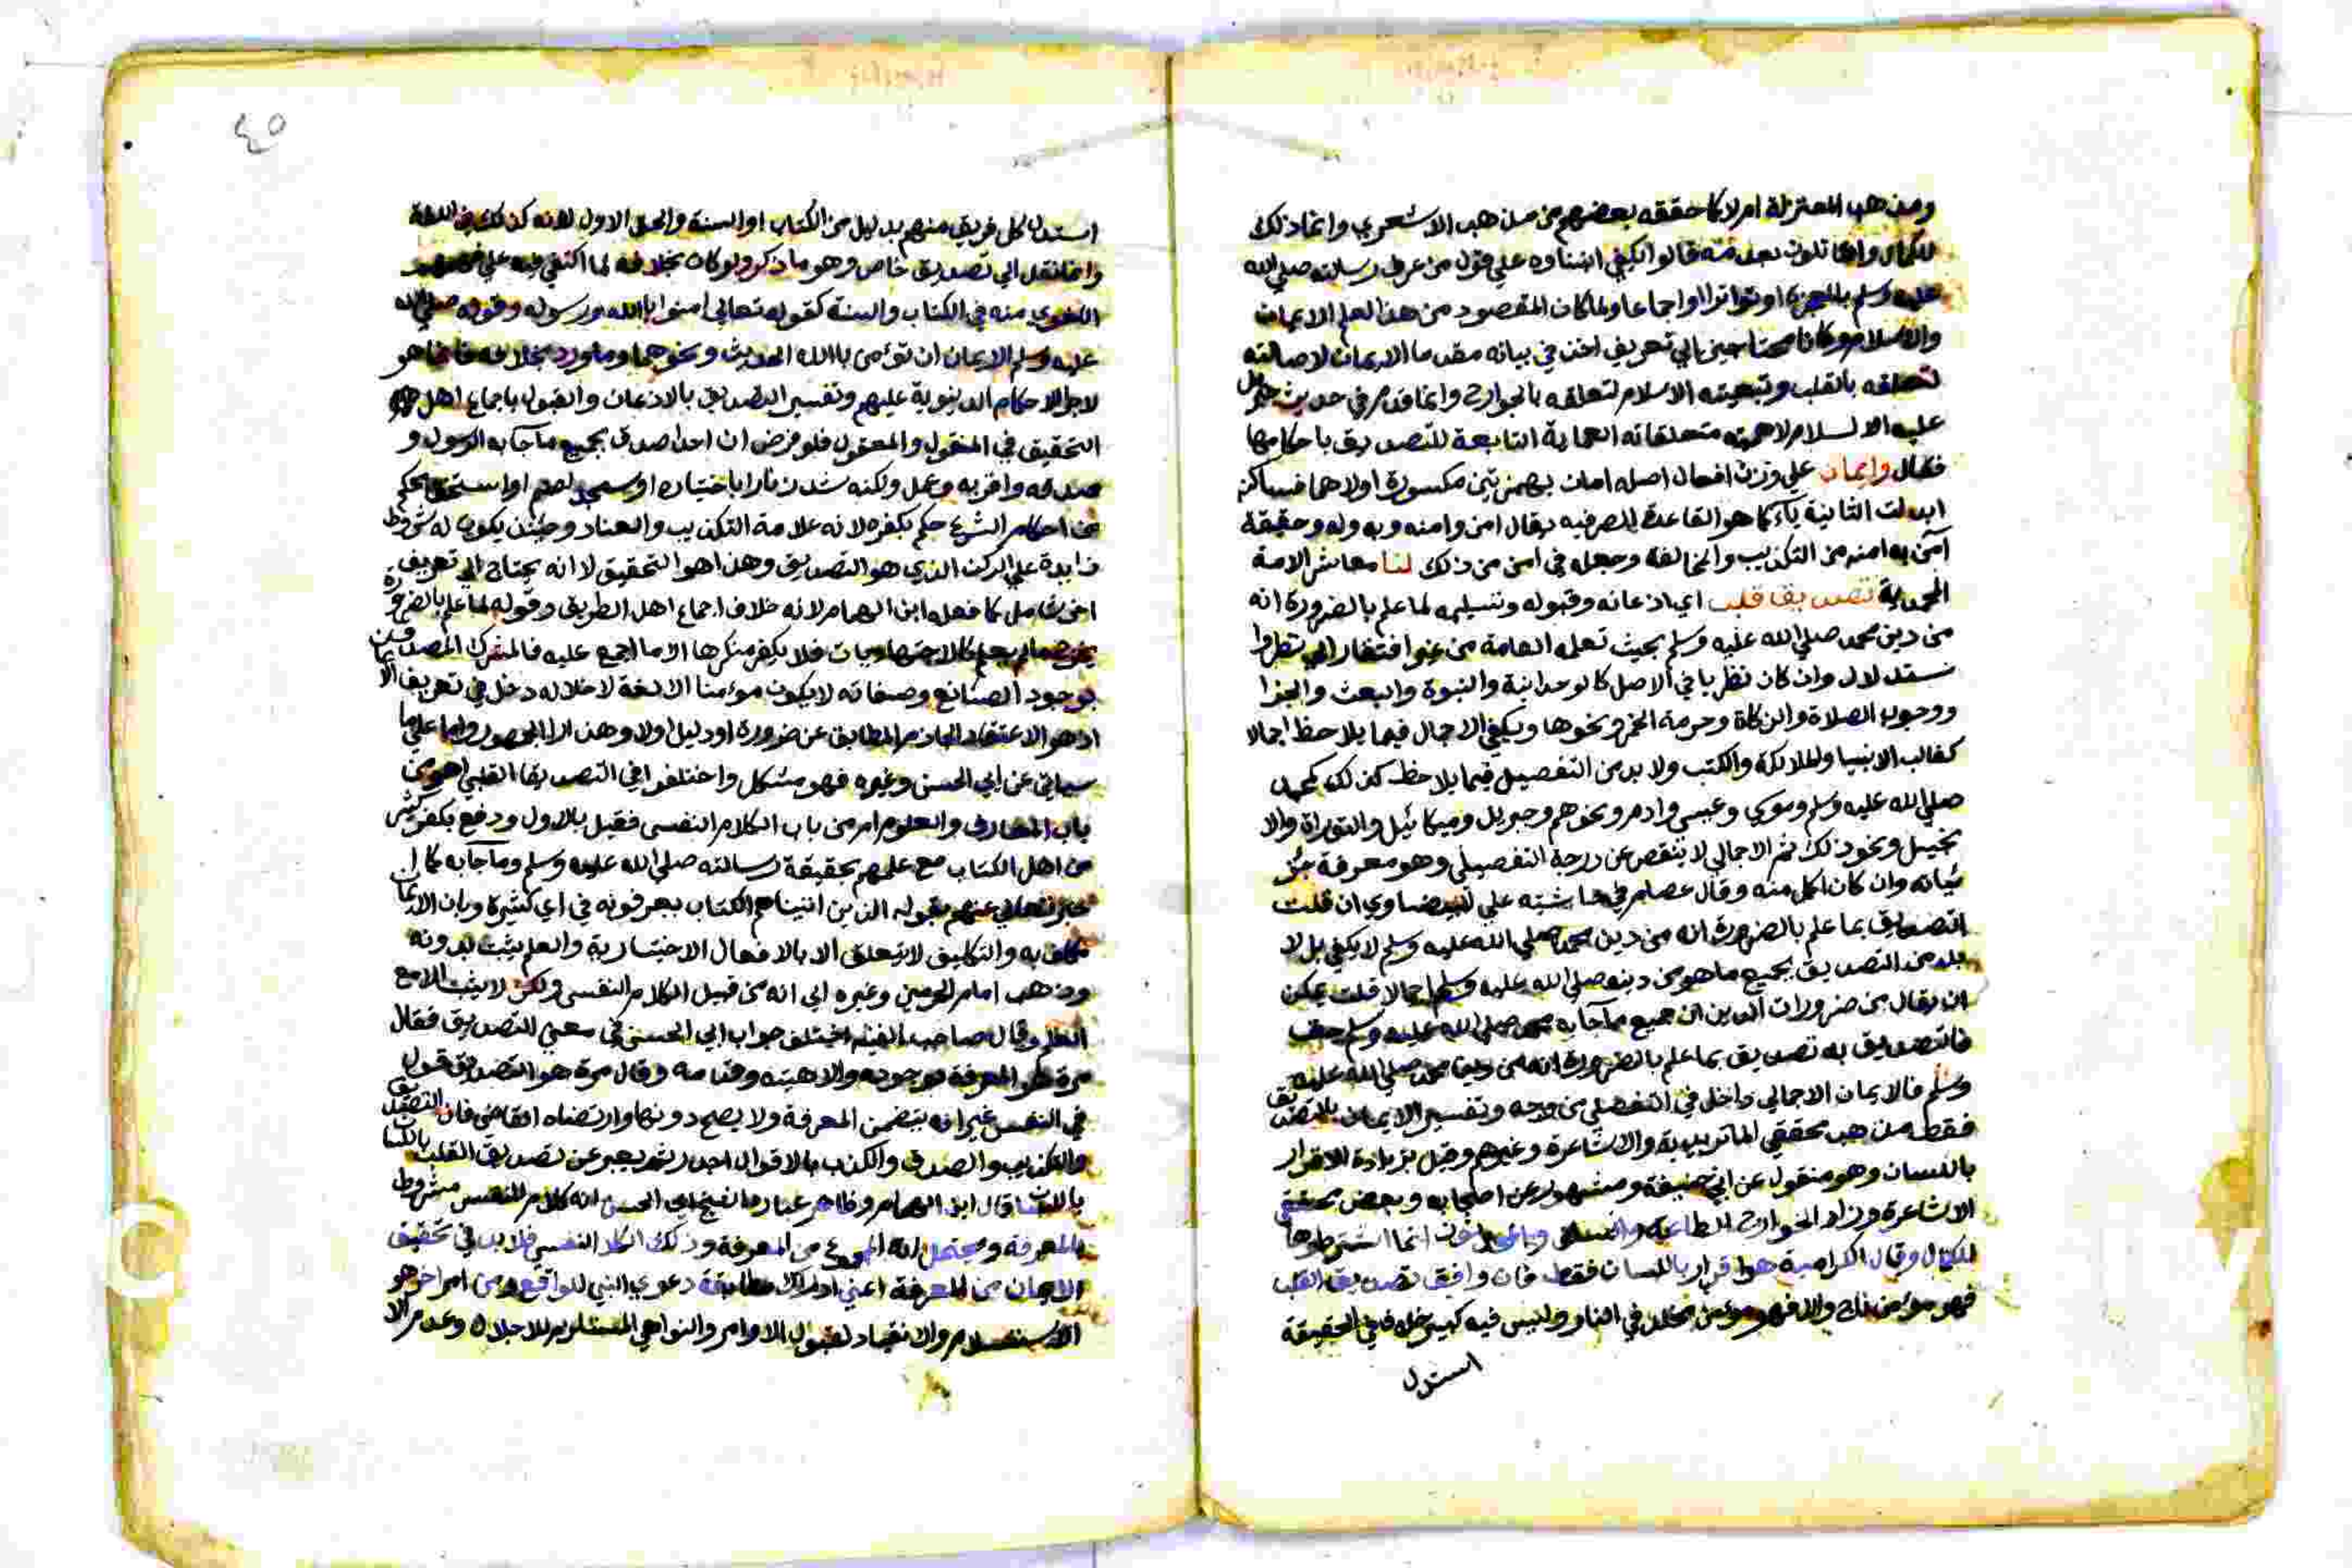 ومذهب المعتزلة ام لا كما حققه بعضهم من مذهب الاشعري وانما ذلك
للكمال والقائلون بعدمه قالوا يكفي ابتناوه علي قول من عرف رسالته صلي الله
عليه وسلم بالمعجزة او تواترا او اجماعا ولما كان المقصود من هذا العلم الايمان
والاسلام وكانا محتاجين الي تعريف اخذ في بيانه مقدما الايمان لاصالته
لتعلقه بالقلب وتبعيته الاسلام لتعلقه بالجوارح وانما قدم في حديث جبريل
عليه السلام لاهمية متعلقاته العملية التابعة للتصديق باحكامها
فقال وايمان علي وزن افعال اصله اامان بهمزتين مكسورة اولاهما فساكنة
ابدلت الثانية ياء كما هو القاعدة الصرفيه يقال امن وامنه وبه وله وحقيقة
آمن به امنه من التكذيب والمخالفة وجعله في امن من ذلك لنا معاشر الامة
المحمدية تصديق قلب اي اذعانه وقبوله وتسليمه لما علم بالضرورة انه
من دين محمد صلي الله عليه وسلم بحيث تعلمه العامة من غير افتقار الي نظر وا
ستدلال وان كان نظريا في الاصل كالوحدانية والنبوة والبعث والجزا
ووجوب الصلاة والزكاة وحرمة الخمر ونحوها ويكفي الاجمال فيما يلاحظ اجمالا
كغالب الانبيا والملائكة والكتب ولا بد من التفصيل فيما يلاحظ كذلك كمحمد
صلي الله عليه وسلم وموسي وعيسى وادم ونحوهم وجبريل وميكائيل والتوراة والا
نجيل ونحو ذلك ثم الاجمالي لا ينقص عن درجة التفصيلي وهو معرفة جز
ئياته وان كان اكمل منه وقال عصام في حاشيته علي البيضاوي ان قلت
التصديق بما علم بالضرورة انه من دين محمد صلي الله عليه وسلم لا يكفي بل لا
بد من التصديق بجميع ما هو من دينه صلي الله عليه وسلم اجمالا قلت يمكن
ان يقال من ضرورات الدين ان جميع ما جآ به محمد صلي الله عليه وسلم حق
فالتصديق به تصديق بما علم بالضرورة انه من دين محمد صلي الله عليه
وسلم فالايمان الاجمالي داخل في التفصيلي من وجه وتفسير الايمان بالتصديق
فقط مذهب محققي الماتريدية والاشاعرة وغيرهم وقيل بزيادة الاقرار
باللسان وهو منقول عن ابي حنيفة ومشهور عن اصحابه وبعض محققي
الاشاعرة وزاد الخوارج الطاعة والسلف انما اشترطوها
للكمال وقال الكرامية هو اقرار باللسان فقط فان وافق تصديق القلب
فهو مؤمن ناج والا فهو مؤمن مخلد في النار وليس فيه كبير خلاف في الحقيقة
استدل
٤٥
استدل كل فريق منهم بدليل من الكتاب او السنة والحق الاول لانه كذلك في اللغة
وانما نقل الي تصديق خاص وهو ما ذكر ولو كان بخلافه لما اكتفي فيه علي
اللغوي منه في الكتاب والسنة كقوله تعالي امنوا بالله ورسوله وقوله صلي الله
عليه وسلم الايمان ان تؤمن بالله الحديث ونحوهما وما ورد بخلافه فانما هو
لاجرا الاحكام الدنيوية عليهم وتفسير التصديق بالاذعان والقبول باجماع اهل
التحقيق في المنقول والمعقول فلو فرض ان احدا صدق بجميع ما جآ به الرسول و
صدقه واقر به وعمل ولكنه شد زنارا باختياره او سجد لصنم او استخف بحكم
من احكام الشرع حكم بكفره لانه علامة التكذيب والعناد وحينئذ يكون له شروط
زايدة علي الركن الذي هو التصديق وهذا هو التحقيق لا انه يحتاج الي تعريف
اخر شامل كما فعله ابن الهمام لانه خلاف اجماع اهل الطريق وقوله لما علم بالضرورة
يخرج ما لم يعلم كالاجتهاديات فلا يكفر منكرها الا ما اجمع عليه فالمشرك المصدق
بوجود الصانع وصفاته لا يكون مومنا الا لغة لاخلاله دخل في تعريف الايمان
اذ هو الاعتقاد الجازم المطابق عن ضرورة او دليل اولا وهذا راي الجمهور واما علي ما
سياتي عن ابي الحسن وغيره فهو مشكل واختلفوا في التصديق القلبي اهو من
باب المعارف والعلوم ام من باب الكلام النفسي فقيل بالاول ودفع بكفر كثير
من اهل الكتاب مع علمهم بحقيقة رسالته صلي الله عليه وسلم وما جآ به كما
تعالي عنهم بقوله الذين اتيناهم الكتاب يعرفونه في اي كثيرة وبان الايمان
مكلف به والتكليف لا يتعلق الا بالافعال الاختيارية والعلم يثبت بدونه
وذهب امام الحرمين وغيره الي انه من قبيل الكلام النفسي ولكن لا يثبت الا مع
العلم وقال صاحب الغنية اختلف جواب ابي الحسن في معني التصديق فقال
مرة هو المعرفة بوجوده والاهيته وقدمه وقال مرة هو التصديق قول
في النفس غير انه يتضمن المعرفة ولا يصح دونها وارتضاه القاضي فان التصديق
والتكذيب والصدق والكذب بالاقوال اجدر ثم يعبر عن تصديق القلب باللسان
قال ابن الهمام وظاهر عبارة الشيخ ابي الحسن انه كلام للنفس مشروط
بالمعرفة ويحتمل انه المجموع من المعرفة وذلك الكلام النفسي فلا بد في تحقيق
الايمان من المعرفة اعني ادراك مطابقة دعوي النبي للواقع ومن امر اخر هو
الاستسلام والانقياد لقبول الاوامر والنواهي المستلزم للاجلال وعدم الا